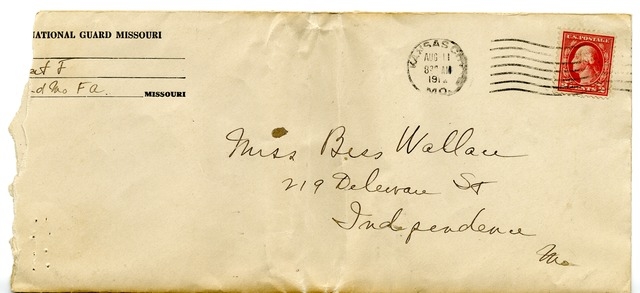 NATIONAL GUARD MISSOURI
F
Mo F A.
MISSOURI
KANSAS CITY
AUG 11
8 AM
191
MO.
U.S. POSTAGE
2 CENTS 2
Miss Bess Wallace
219 Deleware St
Independence
Mo